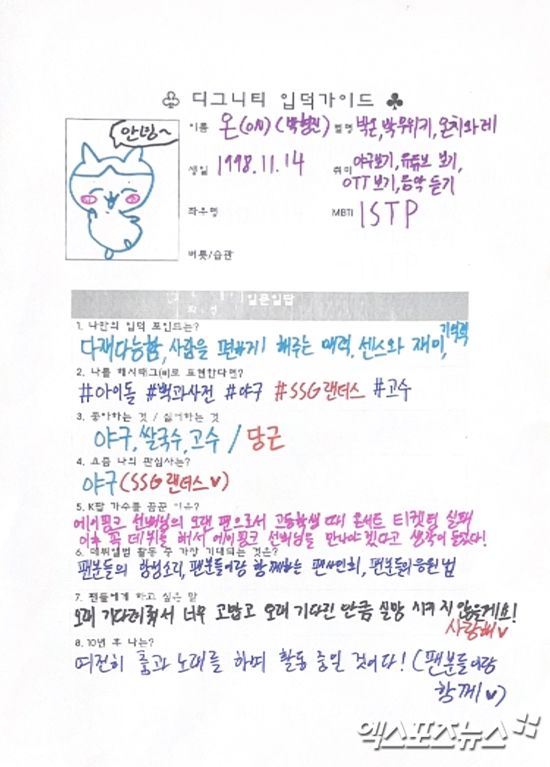 ♧ 디그니티 입덕가이드 ♣
안녕~
이름 온(ON) (박형진) 별명 박온, 박무위키, 온치와레
생일 1998.11.14 취미 야구보기, 유튜브 보기,
OTT보기, 음악 듣기
좌우명 MBTI ISTP
버릇/습관
일문일답
1. 나만의 입덕 포인트는?
다재다능함, 사람을 편하게 해주는 매력, 센스와 재미, 기억력
2. 나를 해시태그(#)로 표현한다면?
#아이돌 #백과사전 #야구 #SSG랜더스 #고수
3. 좋아하는 것 / 싫어하는 것
야구, 쌀국수, 고수 / 당근
4. 요즘 나의 관심사는?
야구(SSG랜더스♥)
5. K팝 가수를 꿈꾼 이유?
에이핑크 선배님의 오랜 팬으로서 고등학생 때 콘서트 티켓팅 실패
이후 꼭 데뷔를 해서 에이핑크 선배님을 만나야겠다고 생각이 들었다!
6. 데뷔앨범 활동 중 가장 기대되는 것은?
팬분들의 함성소리, 팬분들이랑 함께하는 팬사인회, 팬분들의 응원법
7. 팬들에게 하고 싶은 말
오래 기다려줘서 너무 고맙고 오래 기다린 만큼 실망 시키지 않을게요!
사랑해♥
8. 10년 후 나는?
여전히 춤과 노래를 하며 활동 중일 것이다! (팬분들이랑
함께♥)
엑스포츠뉴스